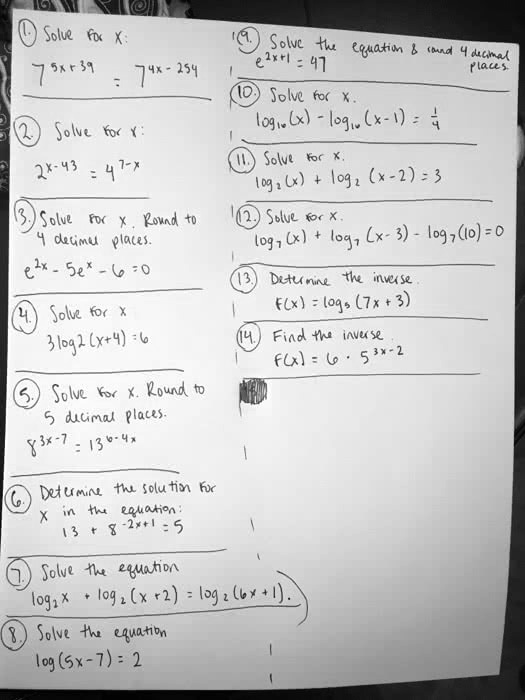 1. Solve for x:
7^(5x + 39) = 7^(4x - 254)
2. Solve for x:
2^(x-43) = 4^(7-x)
3. Solve for x. Round to
4 decimal places.
e^(2x) - 5e^x - 6 = 0
4. Solve for x
3 log2 (x+4) = 6
5. Solve for x. Round to
5 decimal places.
8^(3x-7) = 13^(6-4x)
6. Determine the solution for
x in the equation:
13 + 8^(-2x+1) = 5
7. Solve the equation
log₂ x + log₂ (x + 2) = log₂ (6x + 1).
8. Solve the equation
log (5x - 7) = 2
9. Solve the equation & round 4 decimal
places.
e^(2x+1) = 47
10. Solve for x.
log₁₀ (x) - log₁₀ (x - 1) = 1/4
11. Solve for x.
log₂ (x) + log₂ (x - 2) = 3
12. Solve for x.
log₇ (x) + log₇ (x - 3) - log₇ (10) = 0
13. Determine the inverse.
F(x) = log₅ (7x + 3)
14. Find the inverse.
F(x) = 6 · 5^(3x-2)